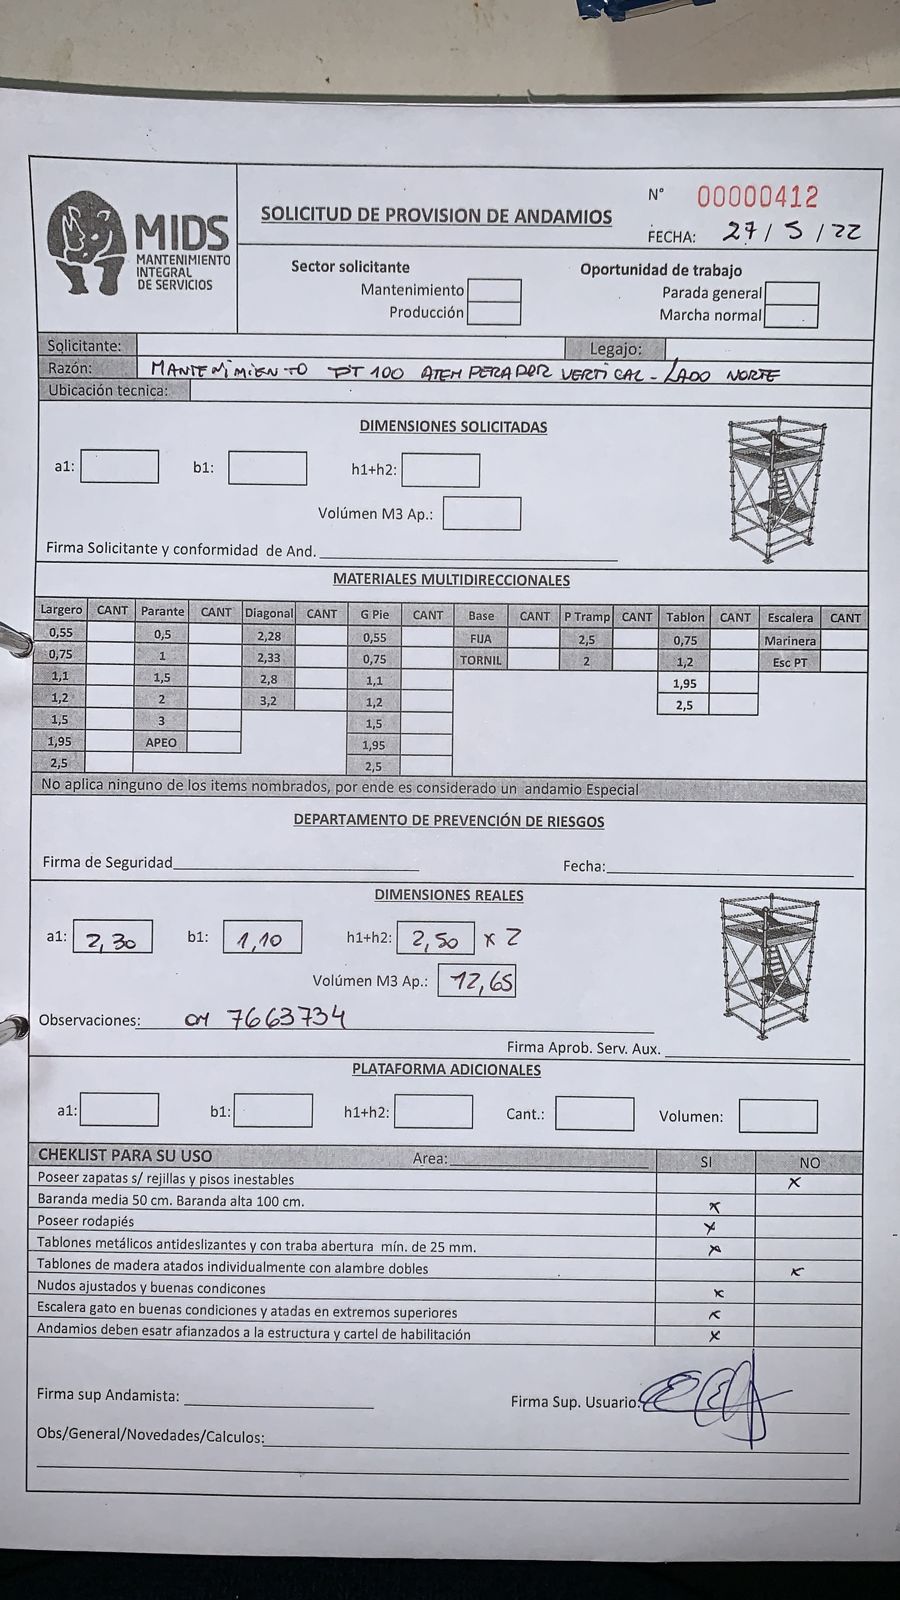 MIDS
MANTENIMIENTO
INTEGRAL
DE SERVICIOS
SOLICITUD DE PROVISION DE ANDAMIOS
N° 00000412
FECHA: 27/5/22
Sector solicitante
Mantenimiento
Producción
Oportunidad de trabajo
Parada general
Marcha normal
Solicitante: Legajo:
Razón: MANTENIMIENTO PT 100 ATEMPERADOR VERTICAL - LADO NORTE
Ubicación tecnica:
DIMENSIONES SOLICITADAS
a1: b1: h1+h2:
Volúmen M3 Ap.:
Firma Solicitante y conformidad de And.
MATERIALES MULTIDIRECCIONALES
Largero CANT Parante CANT Diagonal CANT G Pie CANT Base CANT P Tramp CANT Tablon CANT Escalera CANT
0,55 0,5 2,28 0,55 FIJA 2,5 0,75 Marinera
0,75 1 2,33 0,75 TORNIL 2 1,2 Esc PT
1,1 1,5 2,8 1,1 1,95
1,2 2 3,2 1,2 2,5
1,5 3 1,5
1,95 APEO 1,95
2,5 2,5
No aplica ninguno de los items nombrados, por ende es considerado un andamio Especial
DEPARTAMENTO DE PREVENCIÓN DE RIESGOS
Firma de Seguridad Fecha:
DIMENSIONES REALES
a1: 2,30 b1: 1,10 h1+h2: 2,50 x 2
Volúmen M3 Ap.: 12,65
Observaciones: OM 7663734
Firma Aprob. Serv. Aux.
PLATAFORMA ADICIONALES
a1: b1: h1+h2: Cant.: Volumen:
CHEKLIST PARA SU USO Area: SI NO
Poseer zapatas s/ rejillas y pisos inestables x
Baranda media 50 cm. Baranda alta 100 cm. x
Poseer rodapiés x
Tablones metálicos antideslizantes y con traba abertura mín. de 25 mm. x
Tablones de madera atados individualmente con alambre dobles x
Nudos ajustados y buenas condicones x
Escalera gato en buenas condiciones y atadas en extremos superiores x
Andamios deben esatr afianzados a la estructura y cartel de habilitación x
Firma sup Andamista: Firma Sup. Usuario:
Obs/General/Novedades/Calculos: